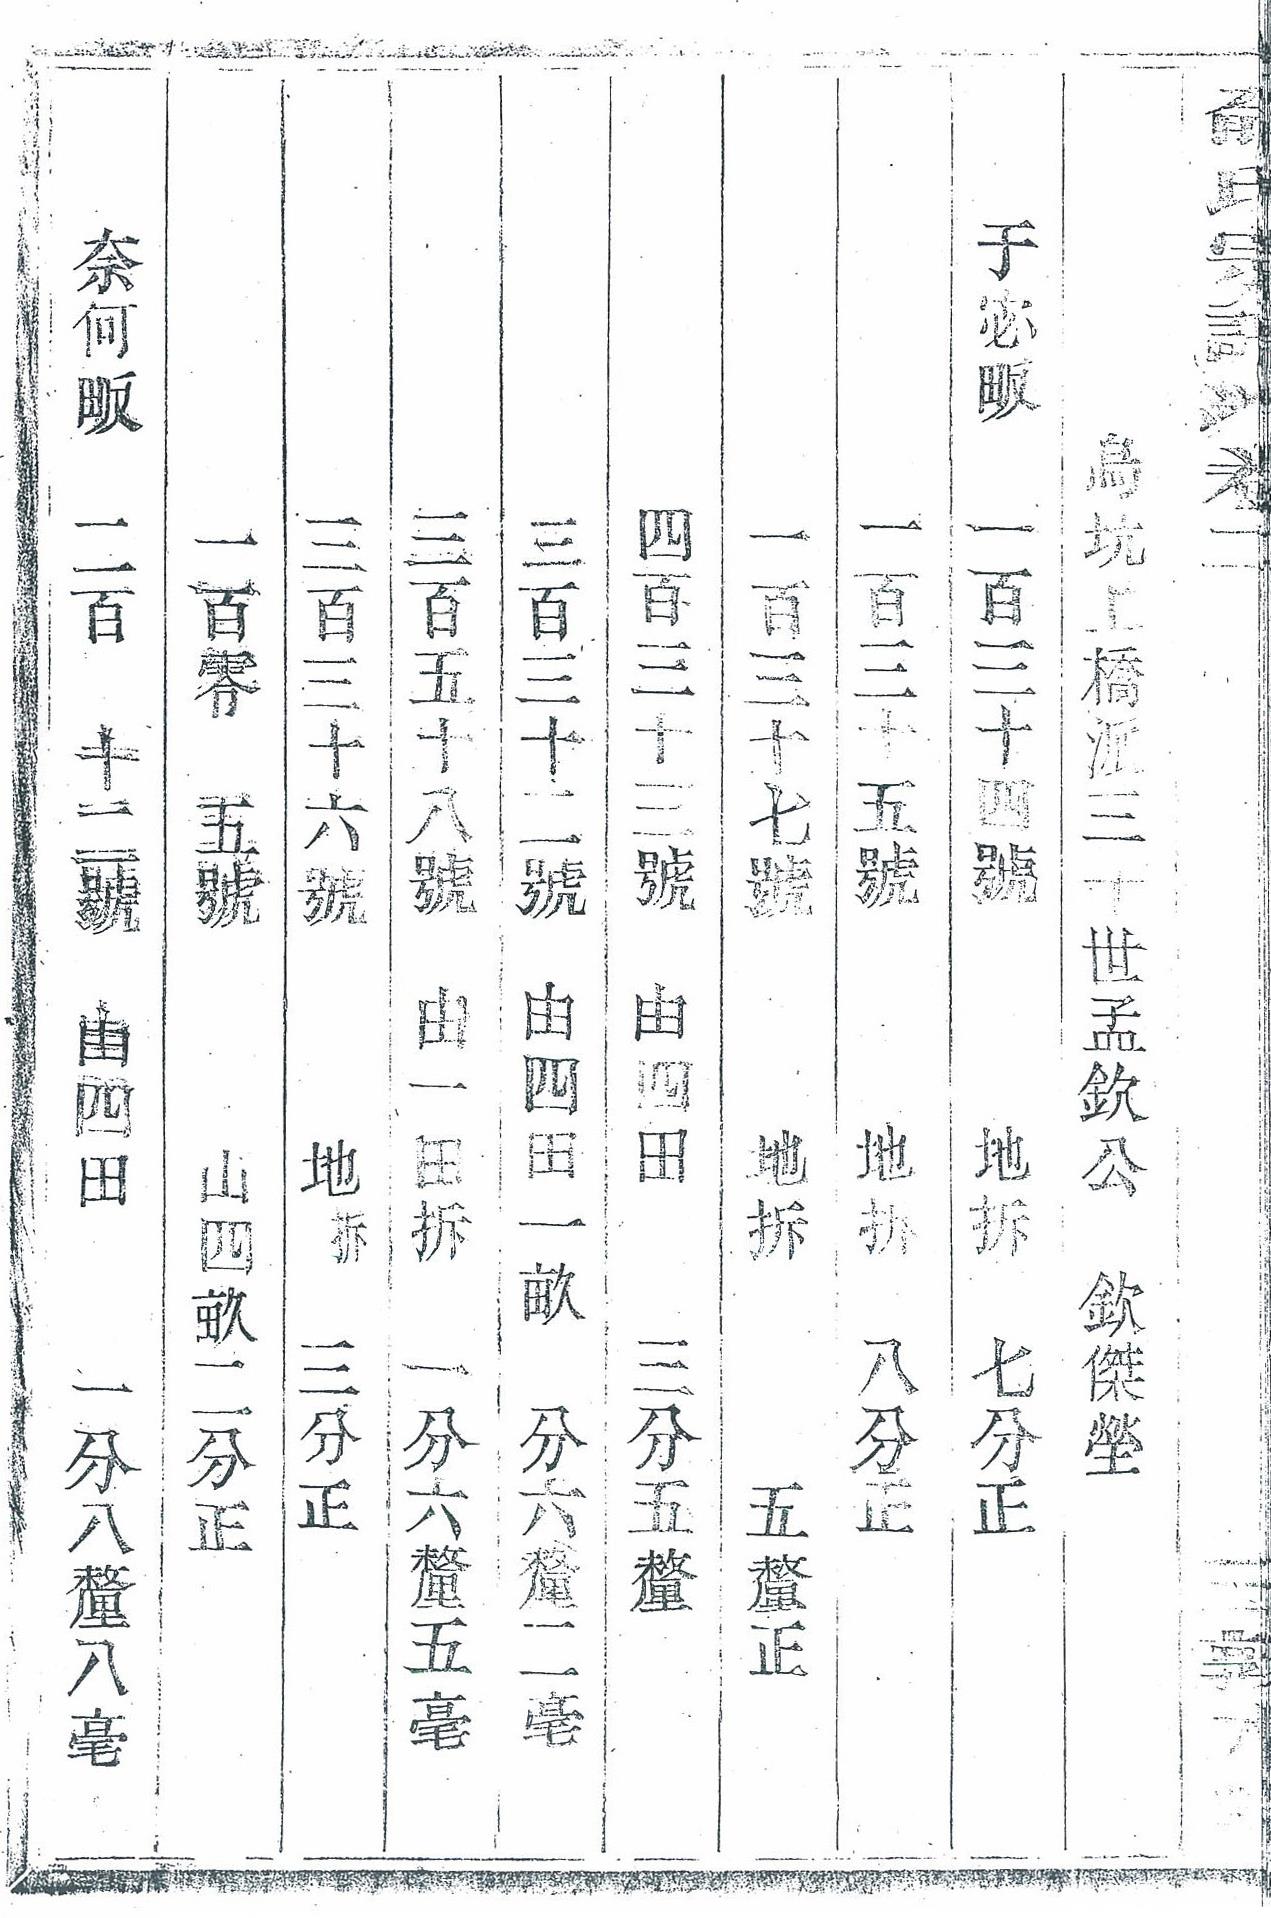 氏宗譜 卷二
烏坑上橋派三十世孟欽公 欽傑塋
于宓畈 一百三十四號 地拆 七分正
一百三十五號 地拆 八分正
一百三十七號 地拆 五釐正
四百三十三號 由四田 三分五釐
三百三十二號 由四田一畝 分六釐二毫
三百五十八號 由一田拆 一分六釐五毫
三百三十六號 地拆 三分正
一百零 五號 山四畝二分正
奈何畈 二百 十二號 由四田 一分八釐八毫